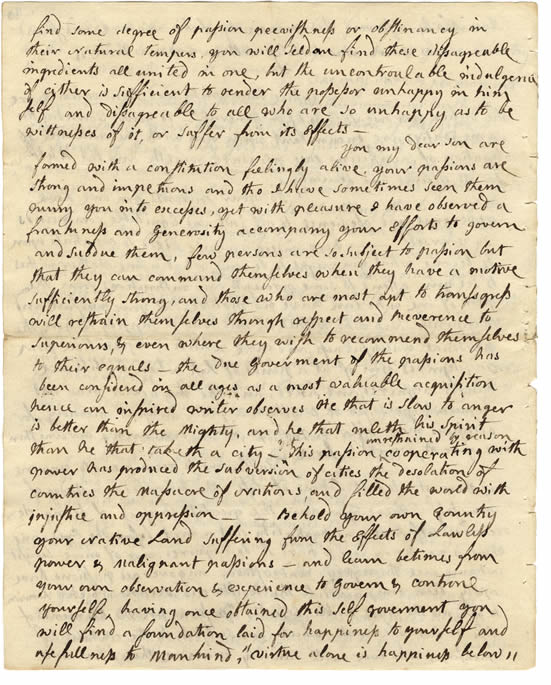 find some degree of passion peevishness or obstinancy in
their natural tempers. you will seldom find these disagreeable
ingredients all united in one, but the uncontroulable indulgence
of either is sisfficient to render the possessor unhappy in him
self and disagreeable to all who are so unhappy as to be
wittnesses of it, or suffer from its Effects —
you my dear son are
formed with a constitution feelingly alive, your passions are
strong and impetuous and tho I have sometimes seen them
hurry you into excesses, yet with pleasure I have observed a
frankness and Generosity accompany your Efforts to govern
and subdue them, few persons are so subject to passion but
that they can command themselves when they have a motive
sufficiently strong, and those who are most apt to transgress
will restrain themselves through respect and Reverence to
Superiours, & even where they wish to recommend themselves
to their equals — the due Goverment of the passions has
been considered in all ages as a most valuable acquisition
hence an inspired writer observes He that is slow to anger
is better than the Mighty, and he that ruleth his Spirit
than he that taketh a city — This passion unrestrained by reason cooperating with
power has produced the subversion of cities the desolation of
countries the Massacre of Nations, and filled the world with
injustice and oppression — — Behold your own Country
your Native Land suffering from the Effects of Lawless
power & Malignant passions — and learn betimes from
your own observation & experience to Govern & controul
yourself having once obtained this self goverment you
will find a foundation laid for happiness to yourself and
usefullness to Mankind, "virtue alone is happiness below"